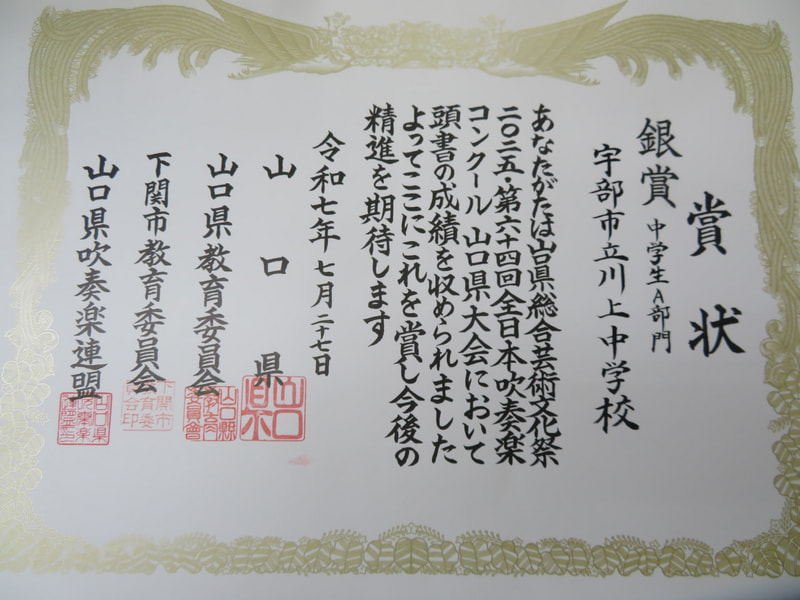 賞状
銀賞 中学生A部門
宇部市立川上中学校
あなたがたは山口県総合芸術文化祭
二〇二五・第六十四回全日本吹奏楽
コンクール 山口県大会において
頭書の成績を収められました
よってここにこれを賞し今後の
精進を期待します
令和七年七月二十七日
山口県
山口県教育委員会
下関市教育委員会
山口県吹奏楽連盟